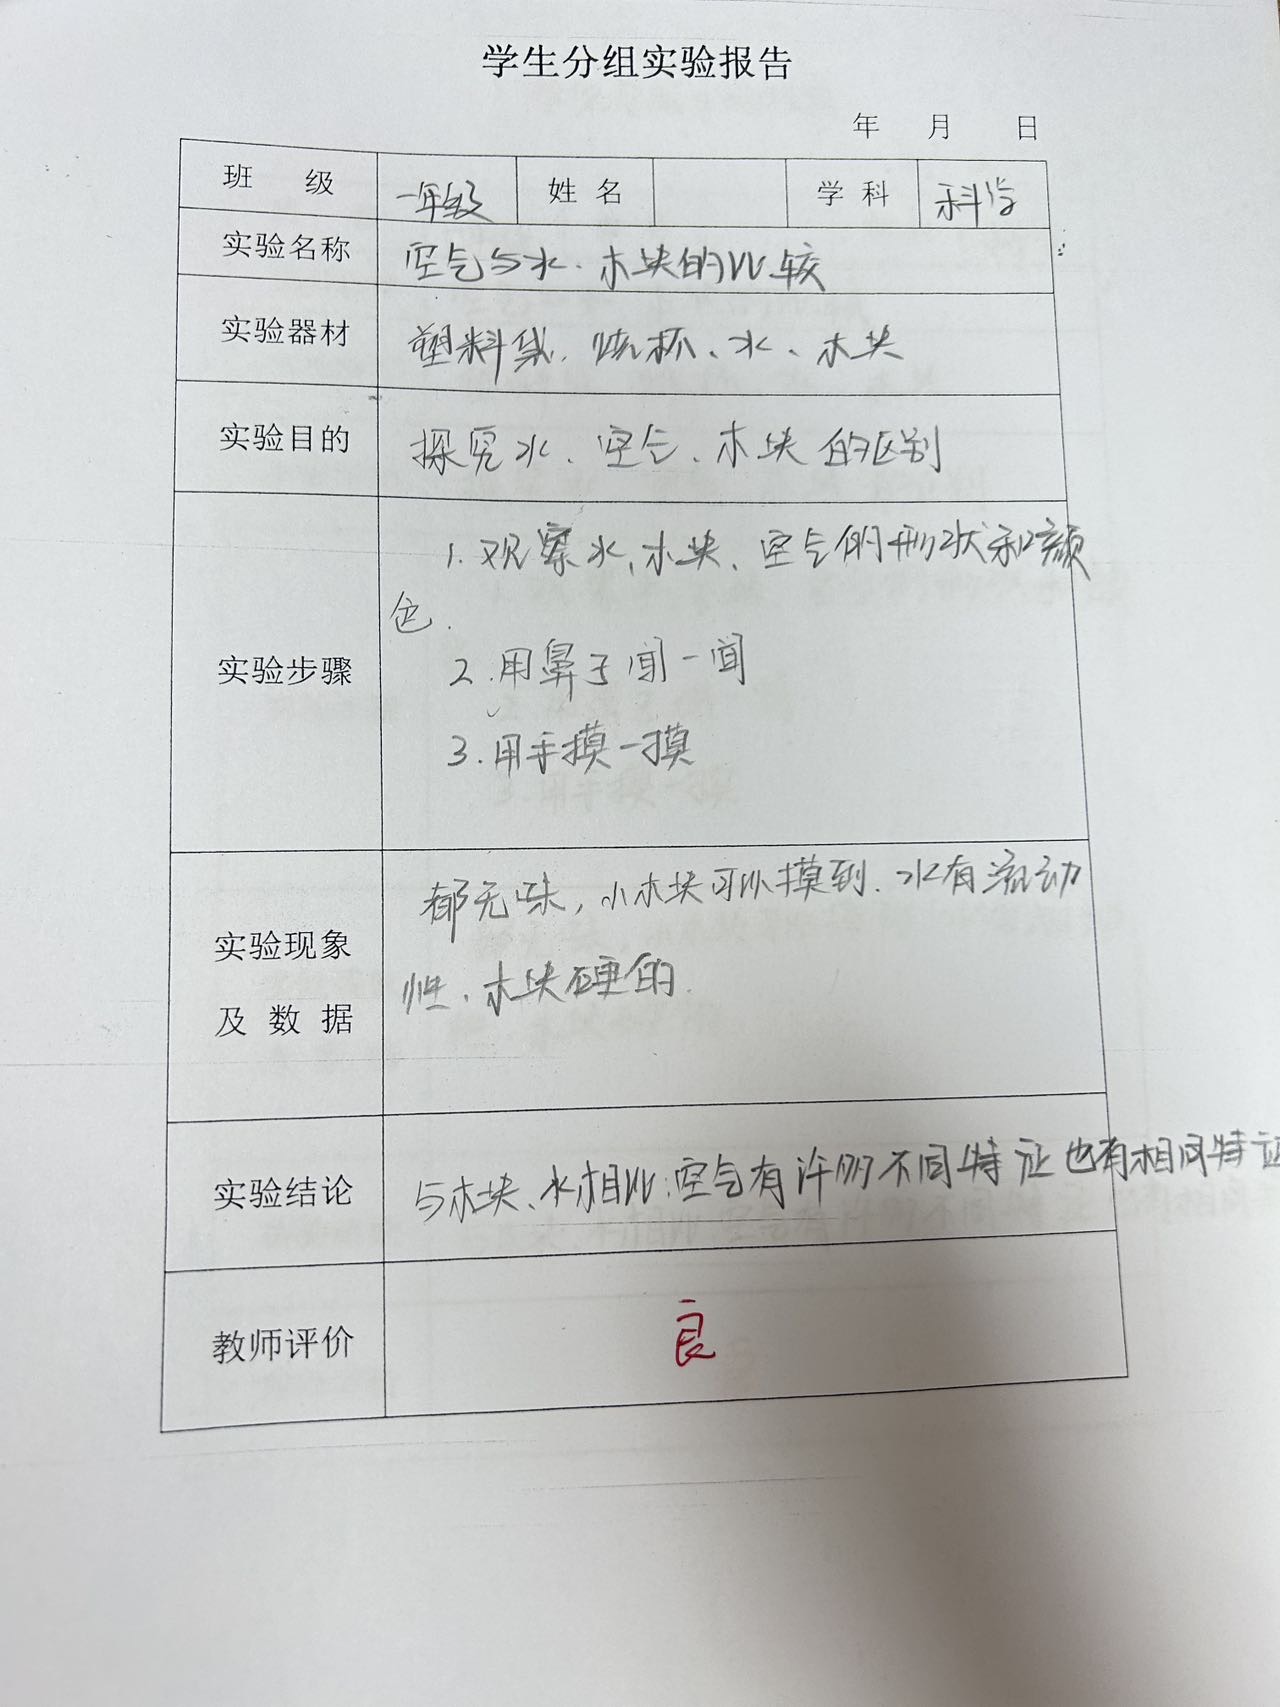 学生分组实验报告
年 月 日
班 级 一年级 姓 名 学 科 科学
实验名称 空气与水、木块的比较
实验器材 塑料袋、烧杯、水、木块
实验目的 探究水、空气、木块的区别
1.观察水、木块、空气的形状和颜
色.
实验步骤 2.用鼻子闻一闻
3.用手摸一摸
都无味,小木块可以摸到.水有流动
实验现象
性、木块硬的.
及 数 据
实验结论 与木块、水相比:空气有许多不同特征也有相同特征
教师评价 良